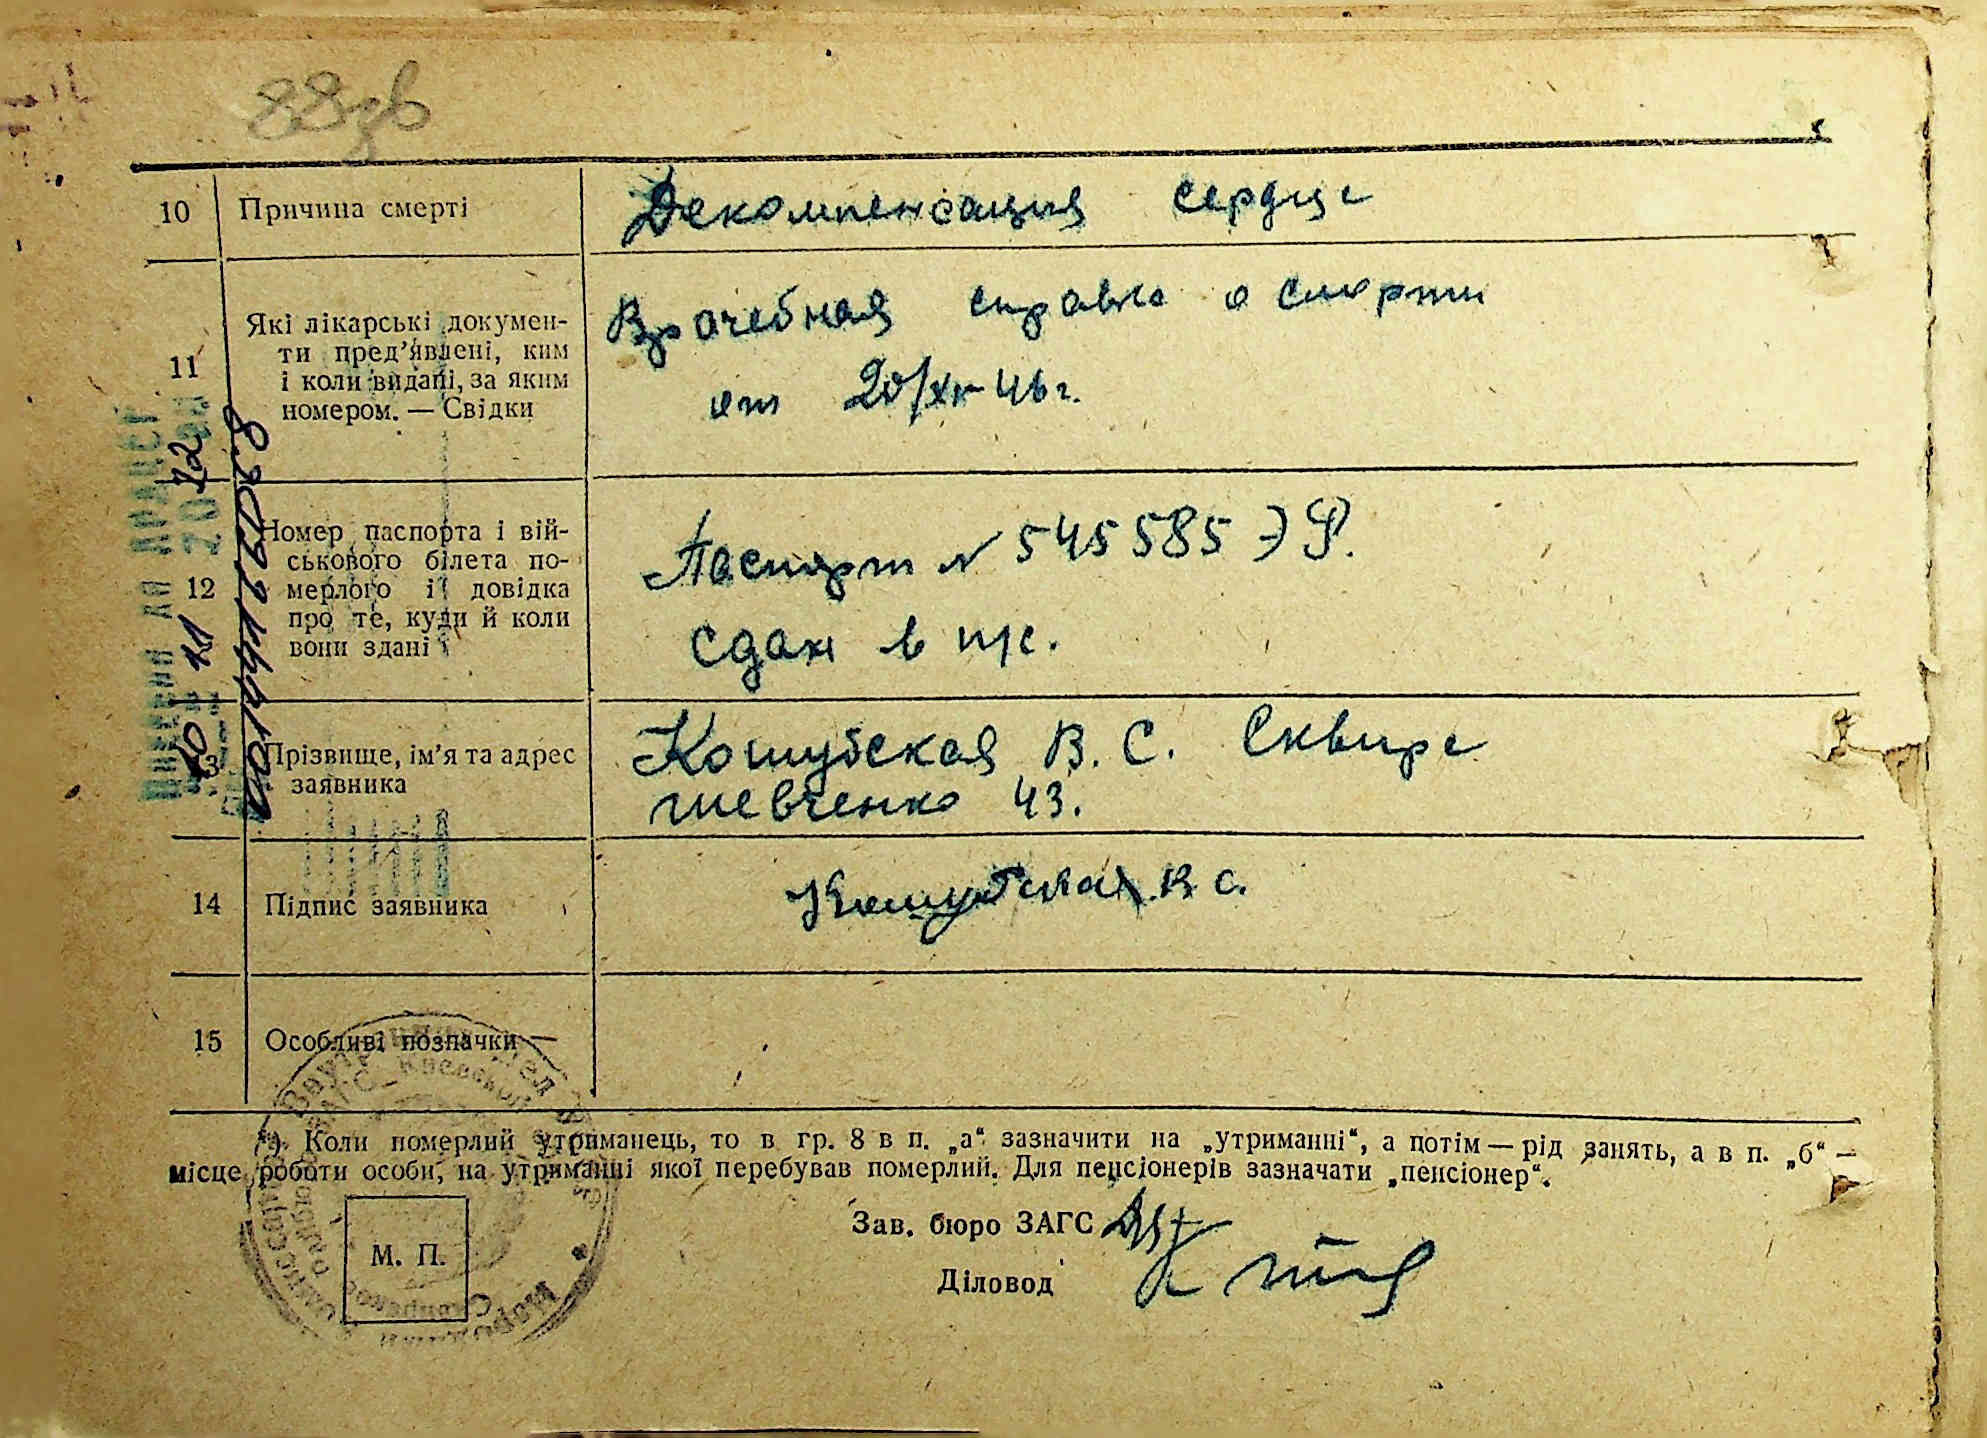 88зв
10 Причина смерті Декомпенсация сердца
11 Які лікарські докумен-
ти пред’явлені, ким
і коли видані, за яким
номером. — Свідки
Врачебная справка о смерти
от 20/XI-46г.
12 Номер паспорта і вій-
ськового білета по-
мерлого і довідка
про те, куди й коли
вони здані
Паспорт № 545585 ЭР.
сдан в п/с.
13 Прізвище, ім’я та адрес
заявника
Кошубская В. С. Сквира
Шевченко 43.
14 Підпис заявника Кошубская В С.
15 Особливі позначки —
*) Коли померлий утриманець, то в гр. 8 в п. „а“ зазначити на „утриманні“, а потім — рід занять, а в п. „б“ —
місце роботи особи, на утриманні якої перебував померлий. Для пенсіонерів зазначати „пенсіонер“.
Зав. бюро ЗАГС
Діловод
М. П.